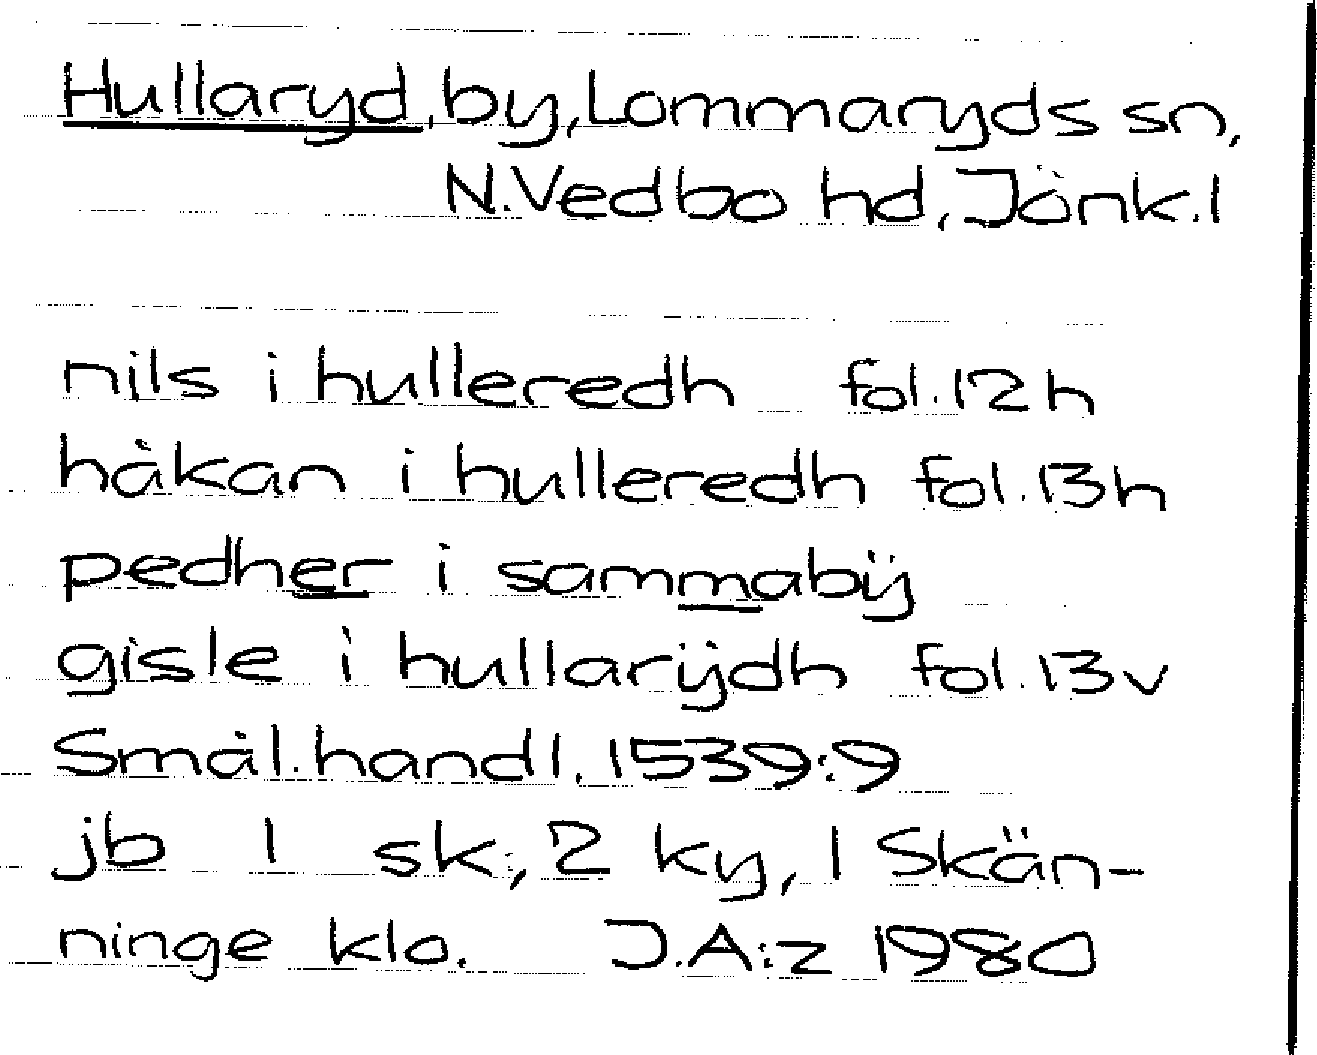 Hullaryd, by, Lommaryds sn,
N.Vedbo hd, Jönk.l
nils i hulleredh fol.12h
håkan i hulleredh fol.13h
pedher i sammabÿ
gisle i hullarÿdh fol.13v
Smål.handl. 1539:9
jb 1 sk, 2 ky, 1 Skän-
ninge klo. J.A:z 1980